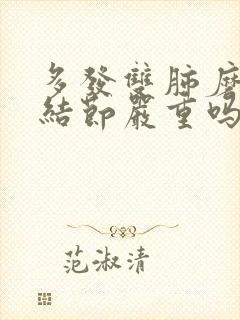 多發雙肺磨
結節嚴重嗎
范淑清